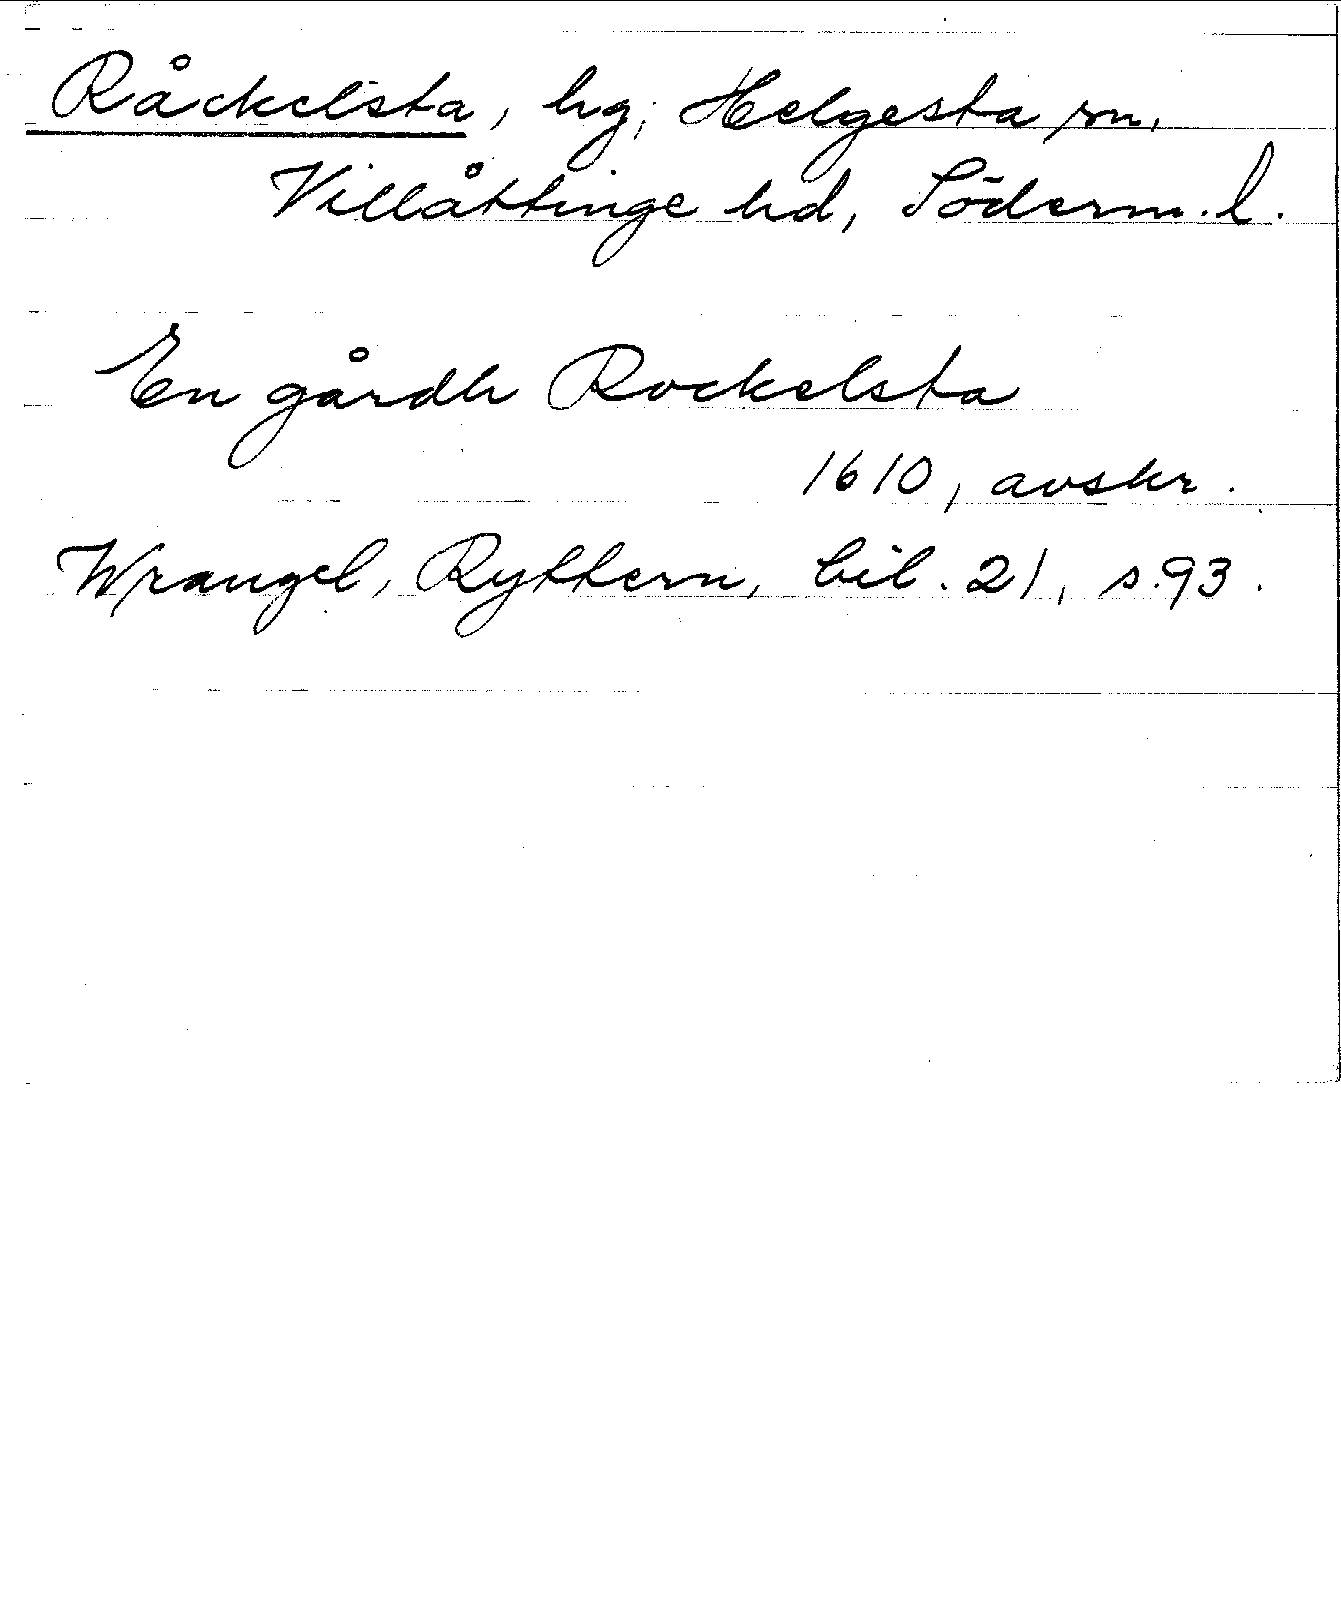 Råckelsta, hg, Helgesta sn,
Villåttinge hd, Söderm. l.
En gårdh Rockelsta
1610, avskr.
Wrangel, Ryttern, bil. 21, s. 93.